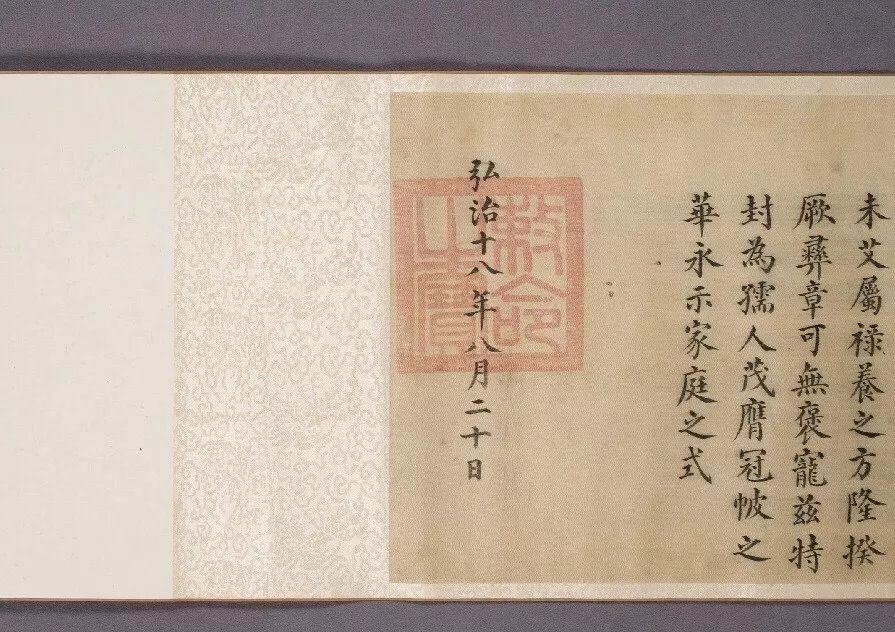 未艾屬祿養之方隆揆
厥彝章可無褒寵茲特
封為孺人茂膺冠帔之
華永示家庭之式
弘治十八年八月二十日
敕命之寶